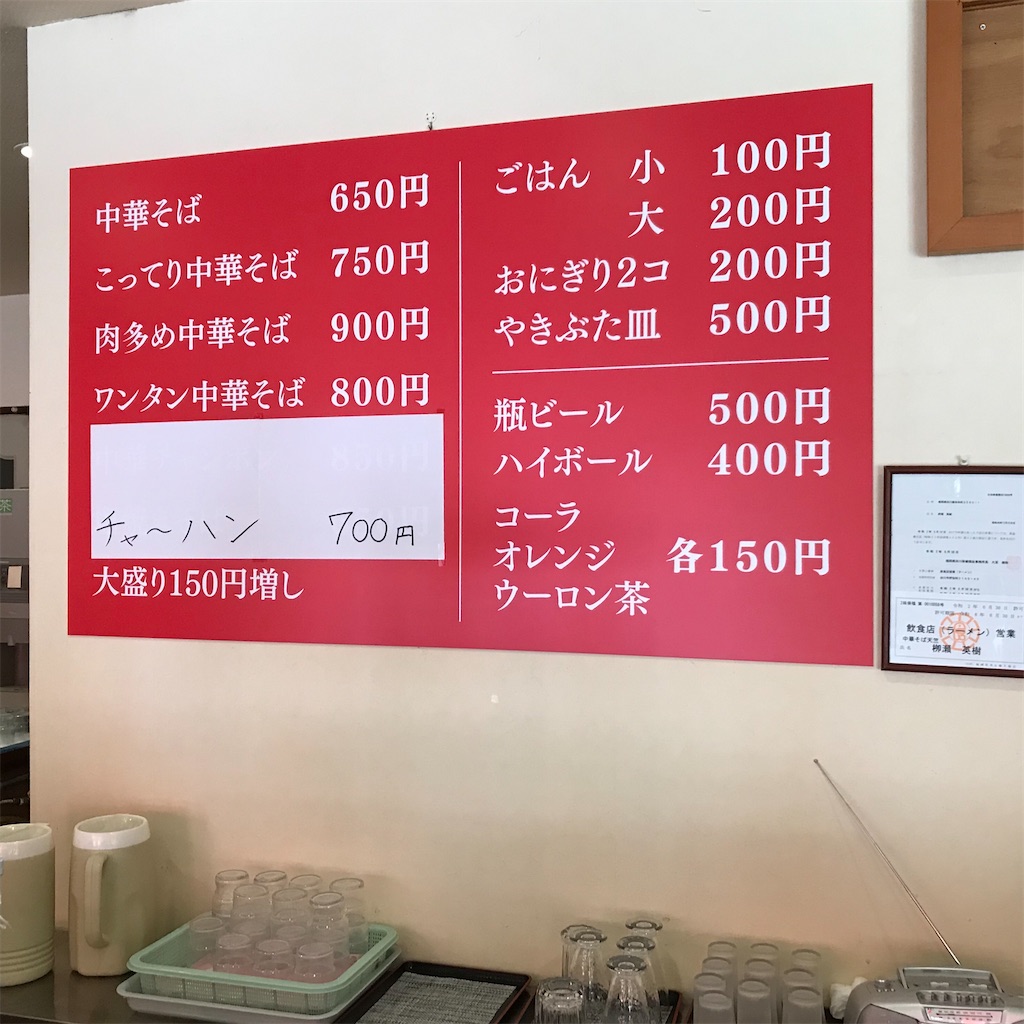 中華そば 650円
こってり中華そば 750円
肉多め中華そば 900円
ワンタン中華そば 800円
チャ〜ハン 700円
大盛り150円増し
ごはん 小 100円
大 200円
おにぎり2コ 200円
やきぶた皿 500円
瓶ビール 500円
ハイボール 400円
コーラ
オレンジ 各150円
ウーロン茶
茶
飲食店(ラーメン)営業
中華そば天竺
柳瀬 英樹